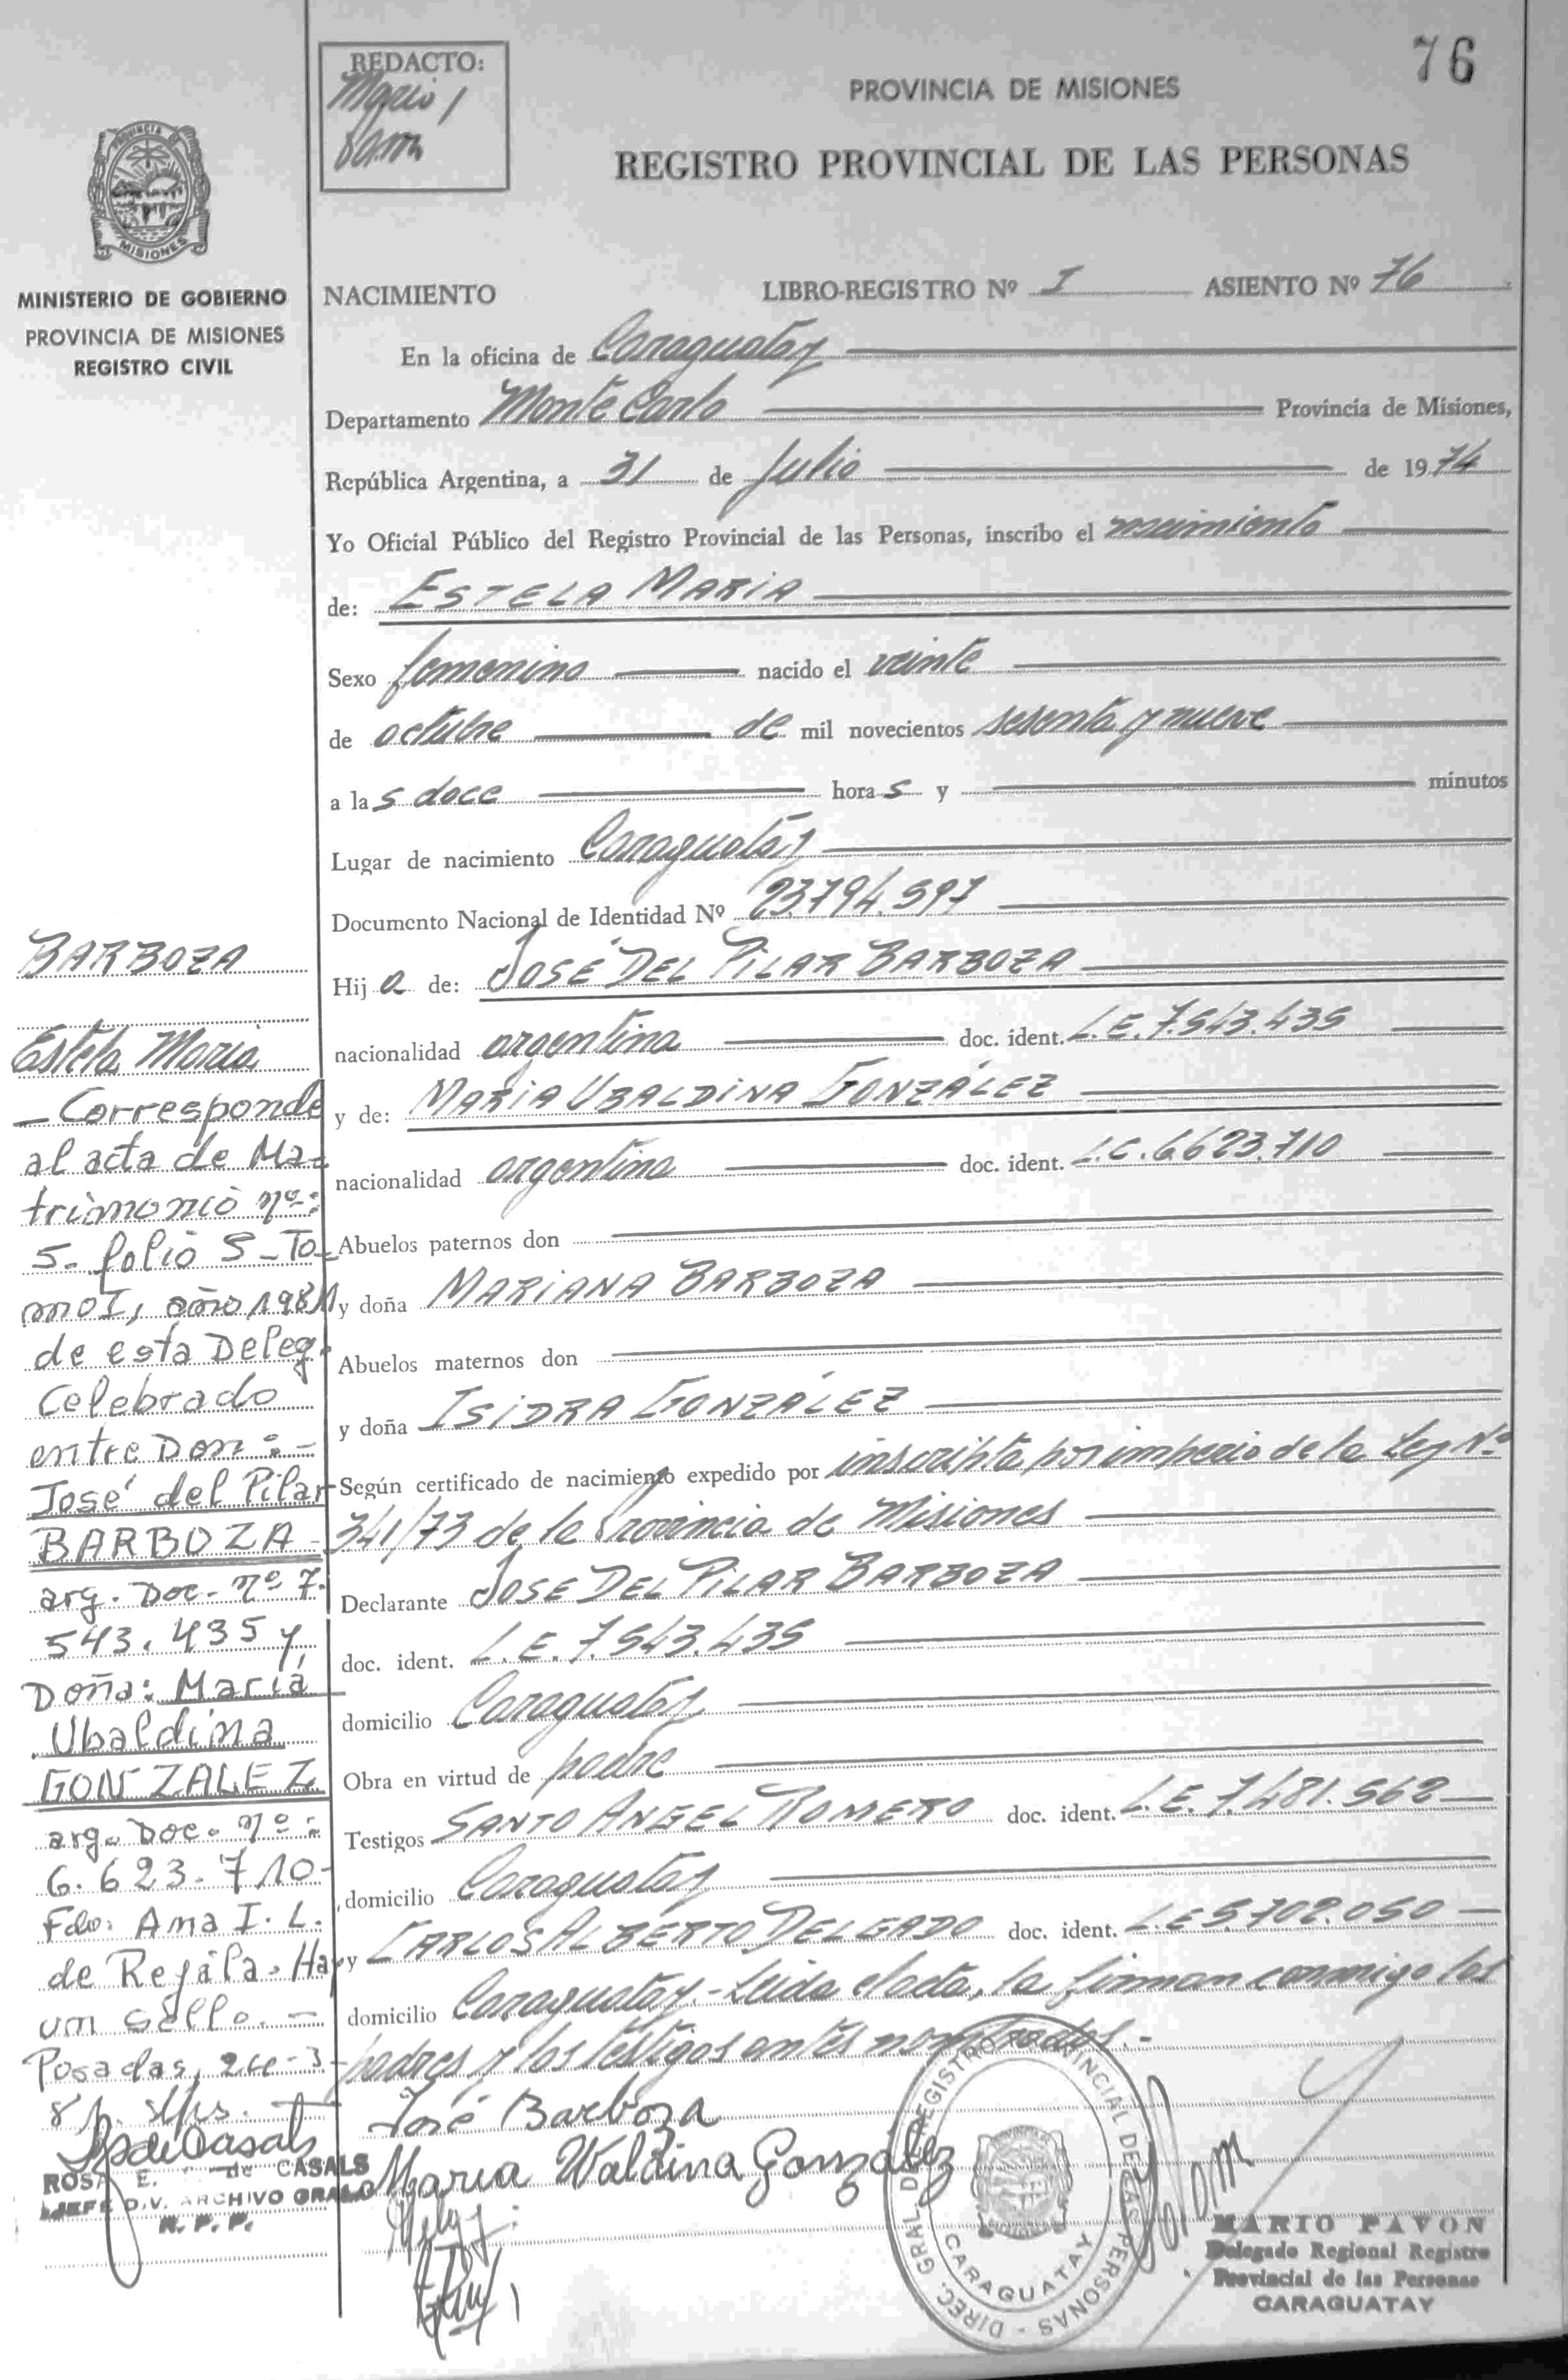 76
REDACTO:
Mario
PROVINCIA DE MISIONES
REGISTRO PROVINCIAL DE LAS PERSONAS
PROVINCIA
MISIONES
MINISTERIO DE GOBIERNO
PROVINCIA DE MISIONES
REGISTRO CIVIL
NACIMIENTO LIBRO-REGISTRO Nº I ASIENTO Nº 76
En la oficina de Caraguatay
Departamento Monte Carlo Provincia de Misiones,
República Argentina, a 31 de Julio de 1974
Yo Oficial Público del Registro Provincial de las Personas, inscribo el nacimiento
de: ESTELA MARIA
Sexo femenino nacido el veinte
de octubre de mil novecientos sesenta y nueve
a las doce horas y minutos
Lugar de nacimiento Caraguatay
Documento Nacional de Identidad Nº 23.794.597
Hija de: JOSÉ DEL PILAR BARBOZA
nacionalidad argentina doc. ident. L.E. 7.543.435
y de: MARIA UBALDINA GONZÁLEZ
nacionalidad argentina doc. ident. L.C. 6.623.710
Abuelos paternos don
y doña MARIANA BARBOZA
Abuelos maternos don
y doña ISIDRA GONZÁLEZ
Según certificado de nacimiento expedido por inscripta por imperio de la Ley Nº
341/73 de la Provincia de Misiones
Declarante JOSE DEL PILAR BARBOZA
doc. ident. L.E. 7.543.435
domicilio Caraguatay
Obra en virtud de padre
Testigos SANTO ANGEL ROMERO doc. ident. L.E. 7.481.562
domicilio Caraguatay
y CARLOS ALBERTO DELGADO doc. ident. L.E 5.702.050
domicilio Caraguatay.- Leida el acta, la firman conmigo los
padres y los testigos antes nombrados.-
José Barboza
Maria Waldina González
BARBOZA
Estela Maria
- Corresponde
al acta de Ma-
trimonio nº:
5- folio 5- To-
mo I, año 1981
de esta Deleg.
Celebrado
entre Don: -
José del Pilar
BARBOZA -
arg. Doc. nº 7.
543.435 y,
Doña: María
Ubaldina
GONZALEZ
arg. Doc. nº:
6.623.710-
Fdo: Ana I. L.
de Rejala. Hay
un sello. -
Posadas,
ROSA E. de CASALS
JEFE DIV. ARCHIVO GRAL
R. P. P.
DIREC. GRAL DE REGISTRO PROVINCIAL DE LAS PERSONAS -
CARAGUATAY
MARIO PAVON
Delegado Regional Registro
Provincial de las Personas
CARAGUATAY